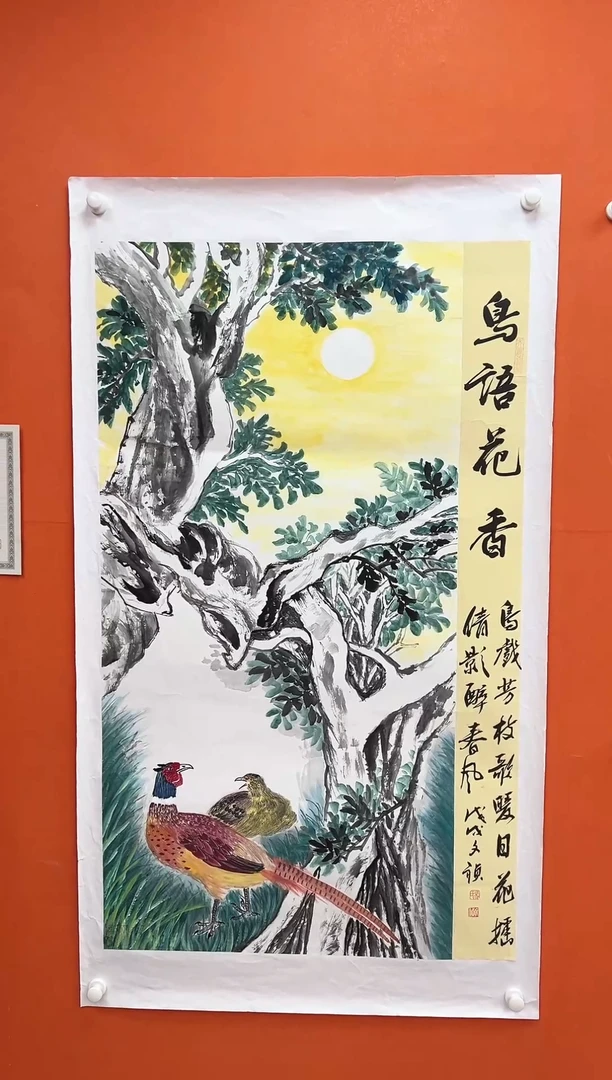 鳥語花香
鳥戲芳枝歌暖日花搖
倩影醉春风戊戌文禎